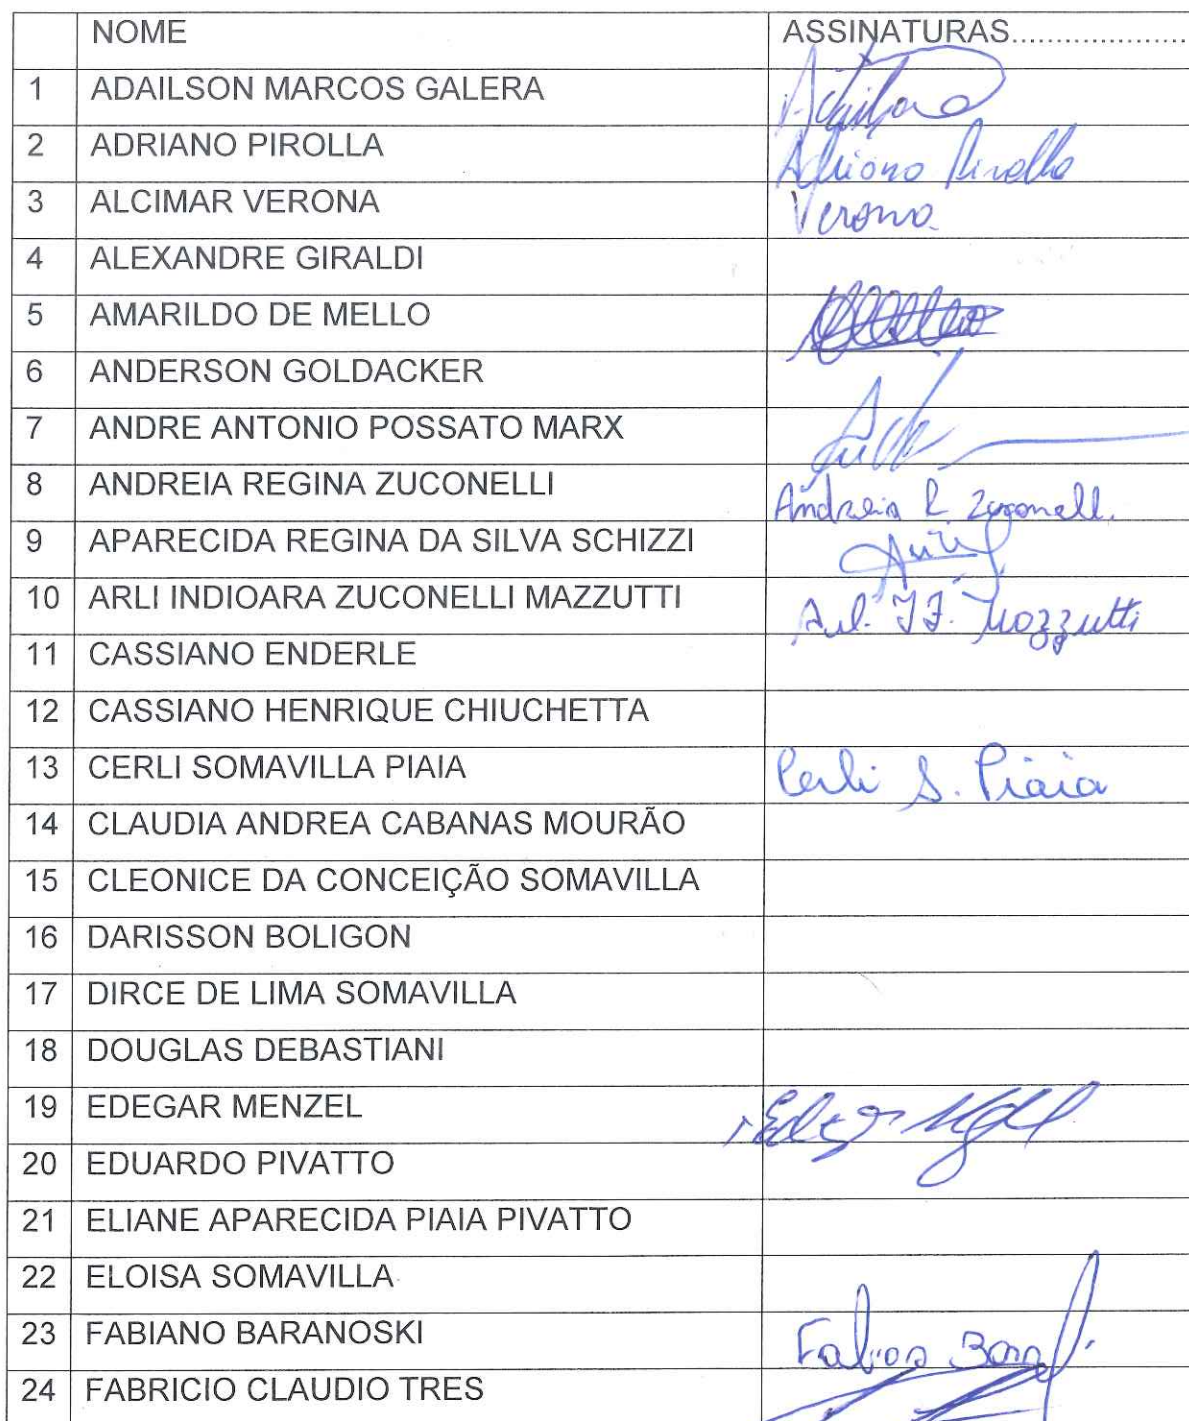 NOME ASSINATURAS....................
1 ADAILSON MARCOS GALERA
2 ADRIANO PIROLLA Adriano Pirolla
3 ALCIMAR VERONA Verona
4 ALEXANDRE GIRALDI
5 AMARILDO DE MELLO
6 ANDERSON GOLDACKER
7 ANDRE ANTONIO POSSATO MARX
8 ANDREIA REGINA ZUCONELLI Andreia R. Zuconelli
9 APARECIDA REGINA DA SILVA SCHIZZI
10 ARLI INDIOARA ZUCONELLI MAZZUTTI Mazzutti
11 CASSIANO ENDERLE
12 CASSIANO HENRIQUE CHIUCHETTA
13 CERLI SOMAVILLA PIAIA Cerli S. Piaia
14 CLAUDIA ANDREA CABANAS MOURÃO
15 CLEONICE DA CONCEIÇÃO SOMAVILLA
16 DARISSON BOLIGON
17 DIRCE DE LIMA SOMAVILLA
18 DOUGLAS DEBASTIANI
19 EDEGAR MENZEL
20 EDUARDO PIVATTO
21 ELIANE APARECIDA PIAIA PIVATTO
22 ELOISA SOMAVILLA
23 FABIANO BARANOSKI
24 FABRICIO CLAUDIO TRES